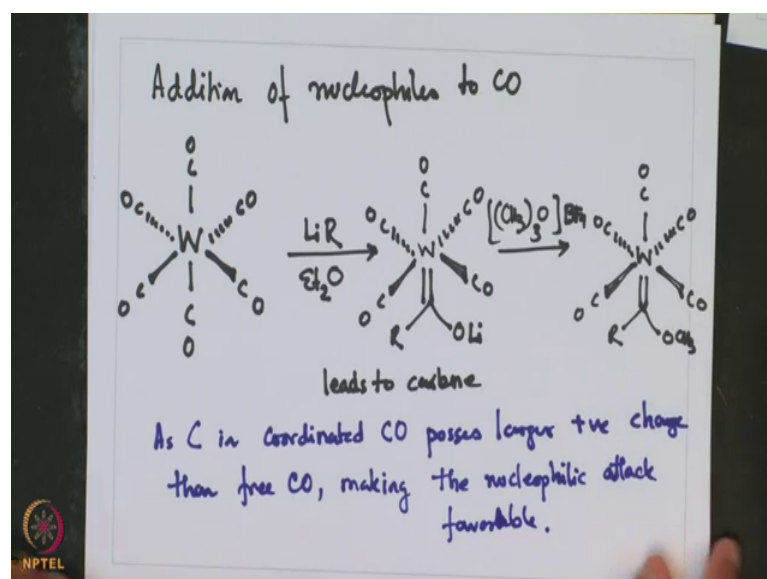 Addition of nucleophiles to CO
O
C
OC
CO
W
C
O
CO
C
O
LiR
Et2O
O
C
OC
CO
W
C
O
CO
R
OLi
[(CH3)3O]BF4
O
C
OC
CO
W
C
O
CO
R
OCH3
leads to carbene
As C in coordinated CO posses larger +ve charge
than free CO, making the nucleophilic attack
favorable.
NPTEL